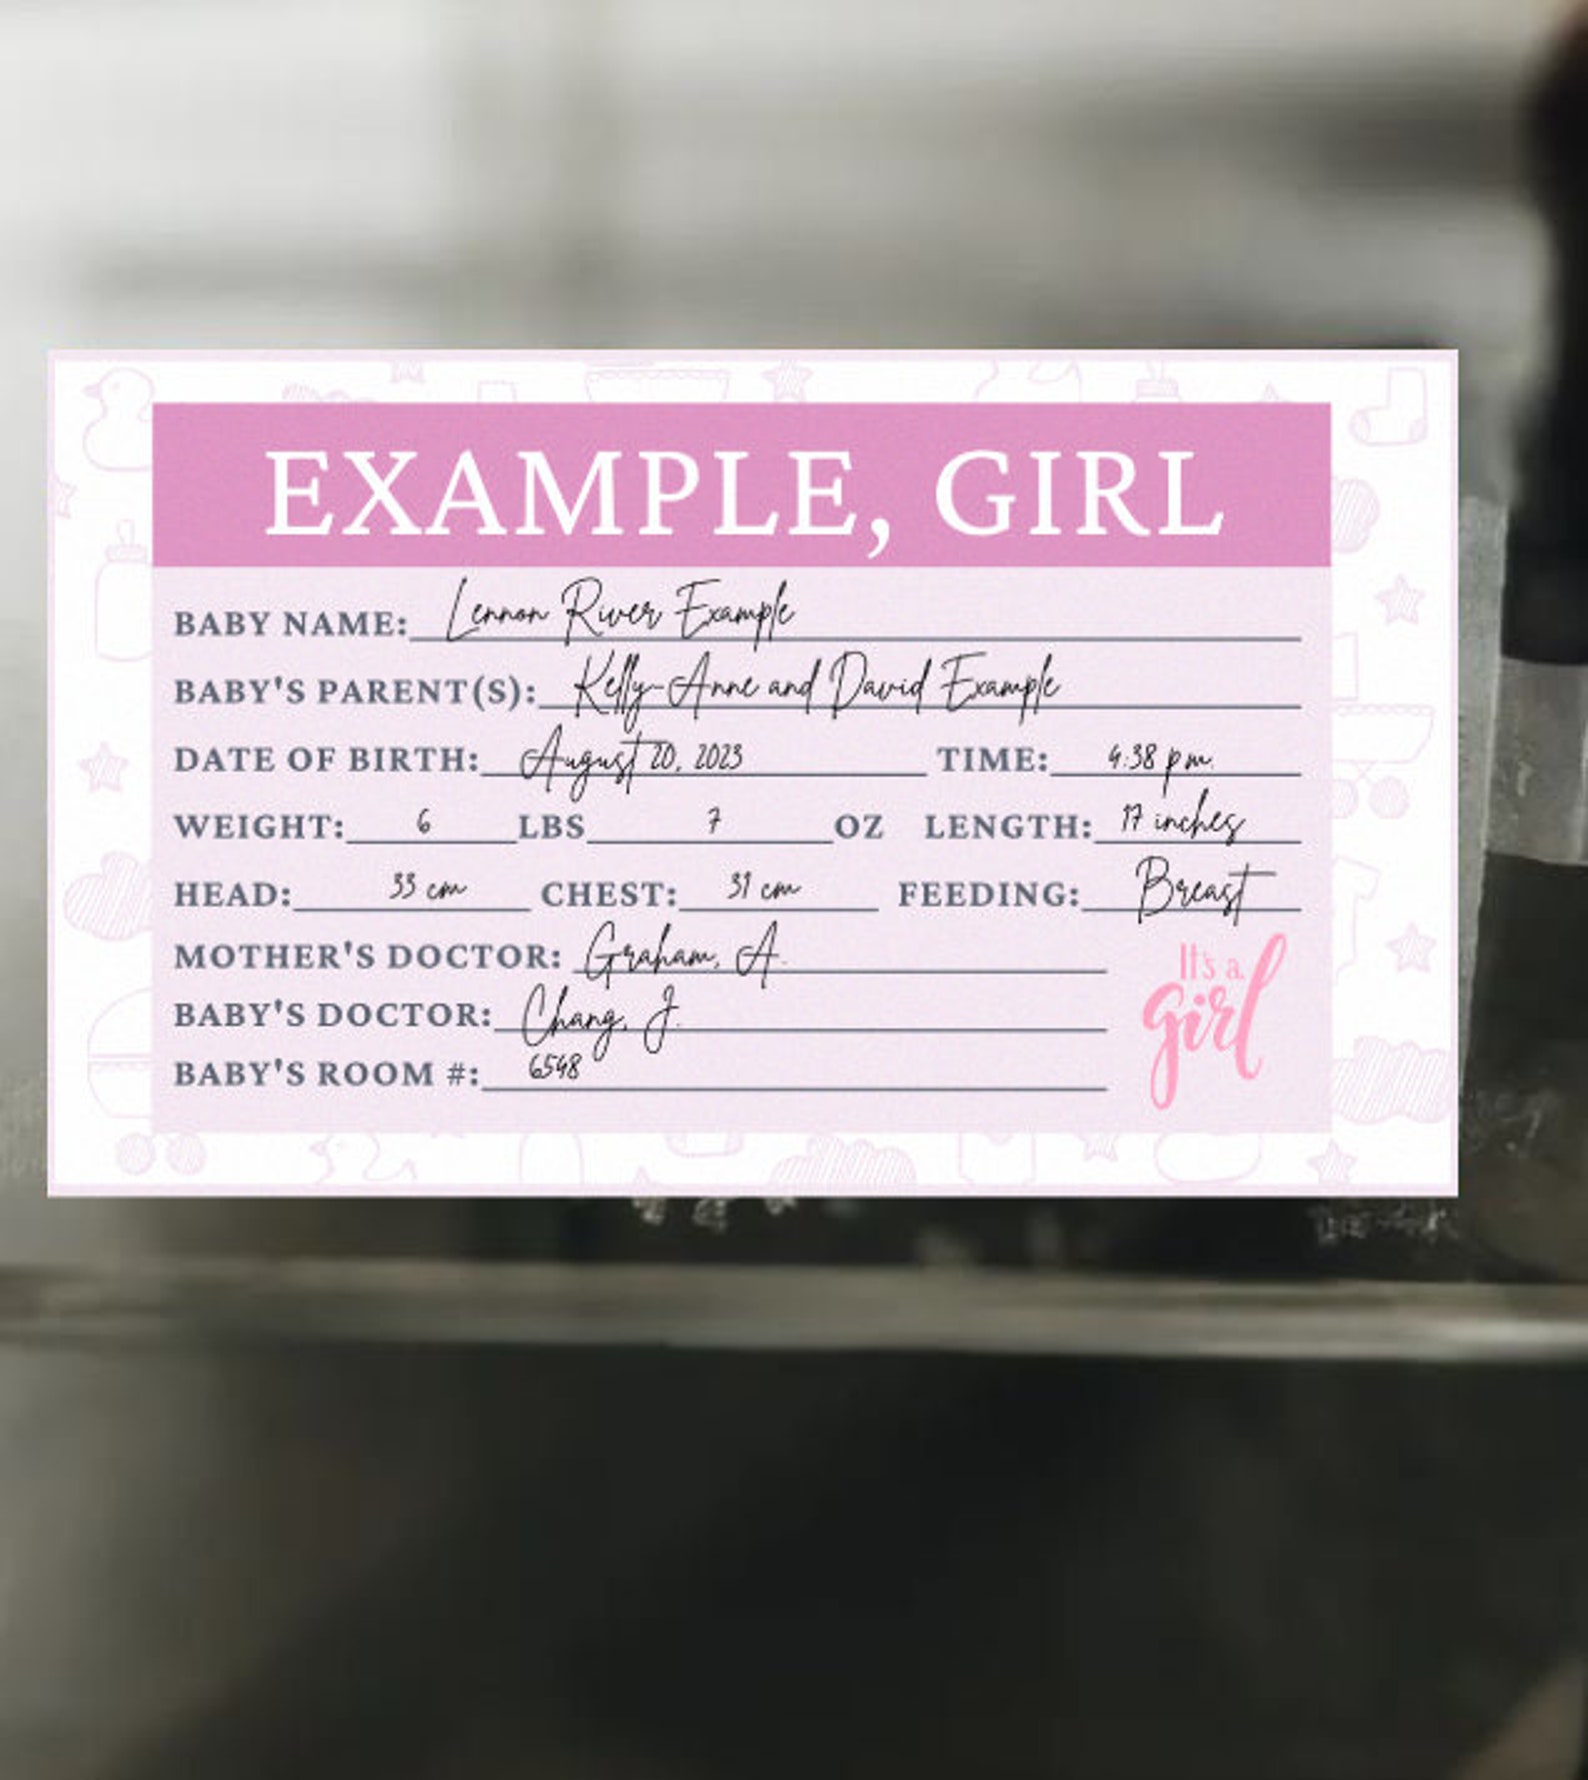 EXAMPLE, GIRL
BABY NAME: Lennon River Example
BABY'S PARENT(S): Kelly-Anne and David Example
DATE OF BIRTH: August 20, 2023 TIME: 4:38 p.m.
WEIGHT: 6 LBS 7 OZ LENGTH: 17 inches
HEAD: 33 cm CHEST: 31 cm FEEDING: Breast
MOTHER'S DOCTOR: Graham, A.
BABY'S DOCTOR: Chang, J.
BABY'S ROOM #: 6548
It's a
girl